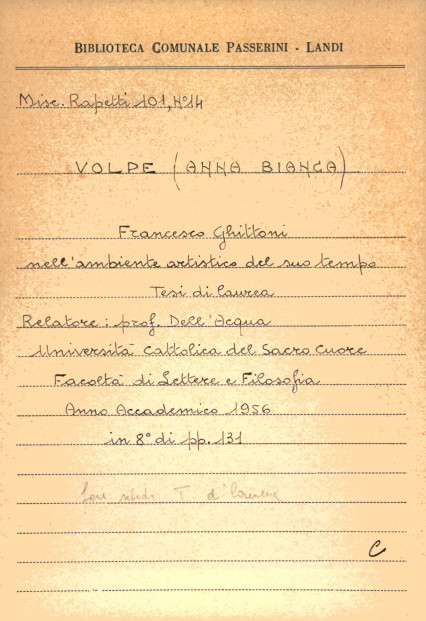 BIBLIOTECA COMUNALE PASSERINI - LANDI
Misc. Rapetti 101, N° 14
VOLPE (ANNA BIANCA)
Francesco Ghittoni
nell'ambiente artistico del suo tempo
Tesi di laurea
Relatore: prof. Dell'Acqua
Università Cattolica del Sacro Cuore
Facoltà di Lettere e Filosofia
Anno Accademico 1956
in 8° di pp. 131
T. di laurea
C